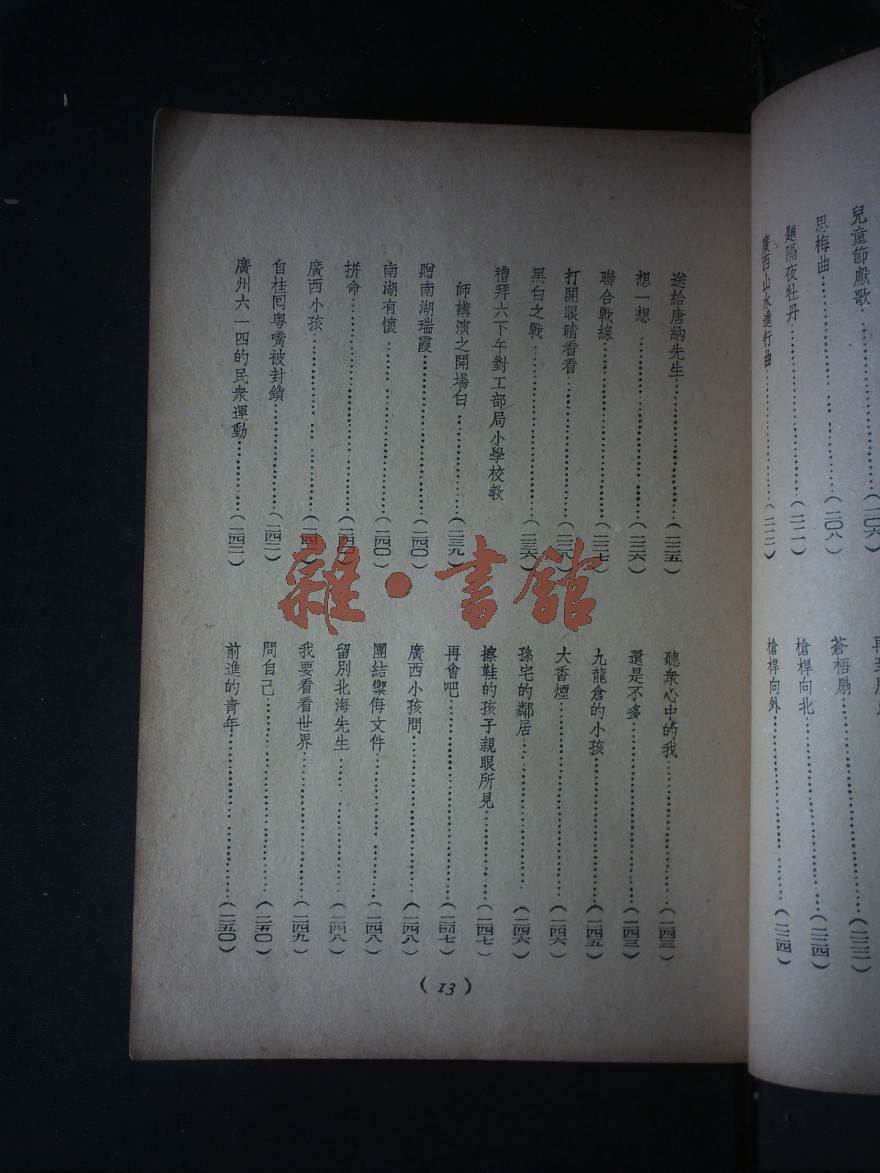 兒童節獻歌
思梅曲……（二〇八）
題隔夜牡丹……（二一一）
廣西山水進行曲
蒼梧扇
槍桿向北……（二二四）
槍桿向外……（二二四）
送給唐納先生……（二三五）
想一想……（二三六）
聯合戰線……（二三七）
打開眼睛看看……（二三八）
黑白之戰……（二三六）
禮拜六下午對工部局小學校教
師講演之開場白……（二三九）
贈南湖瑞霞……（二四〇）
南湖有懷……（二四〇）
拼命……（二四〇）
廣西小孩
自桂囘粵嘴被封鎖……（二四二）
廣州六一四的民衆運動……（二四二）
聽衆心中的我……（二四三）
還是不多……（二四三）
九龍倉的小孩……（二四五）
大香煙……（二四六）
孫宅的鄰居……（二四六）
擦鞋的孩子親眼所見……（二四七）
再會吧……（二四七）
廣西小孩問……（二四八）
團結禦侮文件……（二四八）
留別北海先生……（二四八）
我要看看世界……（二四九）
問自己……（二五〇）
前進的青年……（二五〇）
（13）
雜·書館